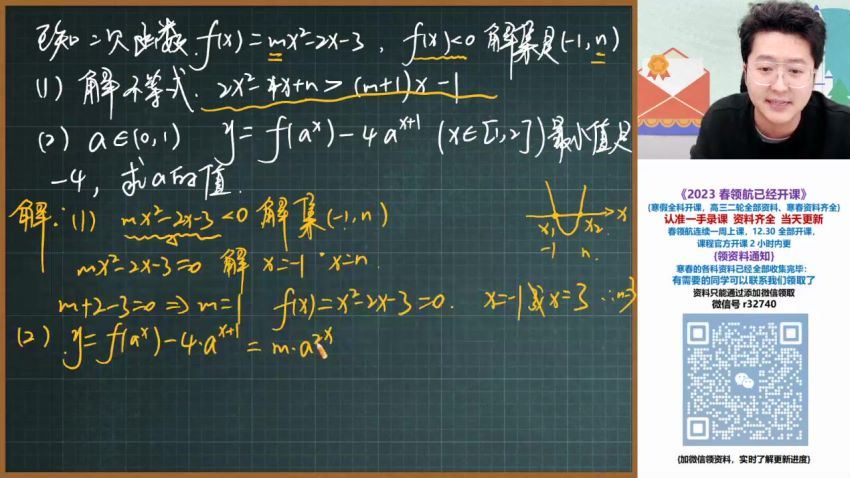 已知二次函数 f(x) = mx²-2x-3 , f(x)<0 解集是(-1,n)
(1) 解不等式. 2x²-4x+n > (m+1)x-1
(2) a∈(0,1) y = f(aˣ) - 4aˣ⁺¹ (x∈[1,2]) 最小值是
-4, 求a的值.
解: (1) mx²-2x-3<0 解集(-1,n)
mx²-2x-3=0 解 x=-1 x=n
m+2-3=0 ⇒ m=1 f(x)=x²-2x-3=0. x=-1或x=3 ∴n=3
(2) y=f(aˣ)-4·aˣ⁺¹ = m·a²ˣ
x₁ x₂ x
-1 n
《2023 春领航已经开课》
(寒假全科开课，高三二轮全部资料、寒春资料齐全)
认准一手录课 资料齐全 当天更新
春领航连续一周上课，12.30 全部开课，
课程官方开课 2 小时内更
(领资料通知)
寒春的各科资料已经全部收集完毕：
有需要的同学可以联系我们领取了
资料只能通过添加微信领取
微信号 r32740
(加微信领资料，实时了解更新进度)